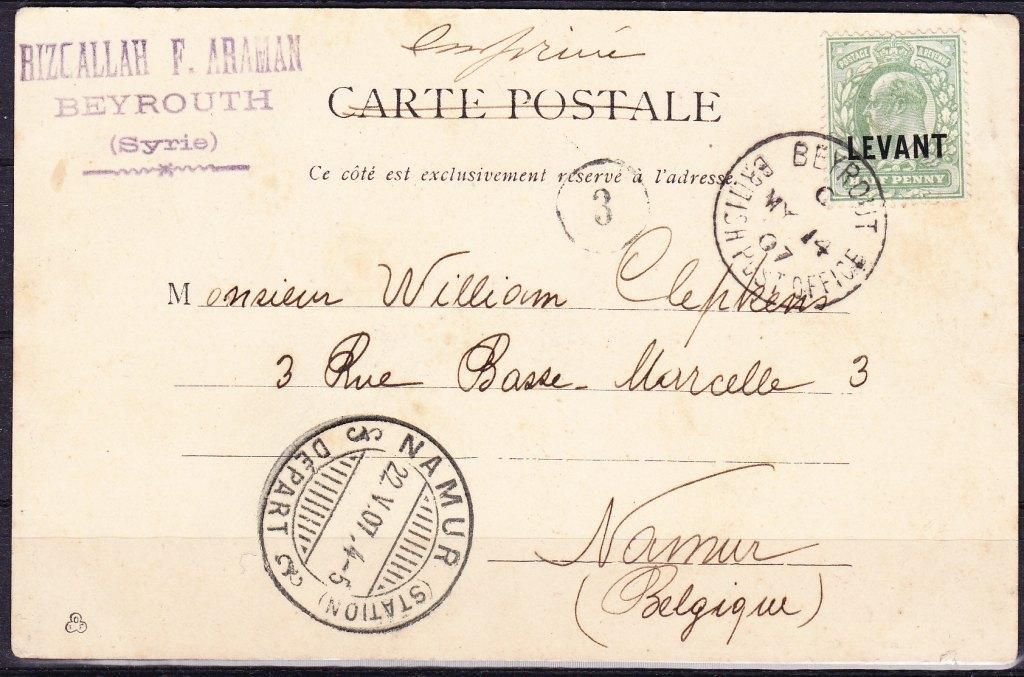 RIZCALLAH F. ARAMAN
BEYROUTH
(Syrie)
imprimé
CARTE POSTALE
Ce côté est exclusivement réservé à l'adresse
POSTAGE & REVENUE
HALF PENNY
LEVANT
BEYROUT
BRITISH POST OFFICE
C
MY 14
07
3
Monsieur William Clepkens
3 Rue Basse-Marcelle 3
Namur
(Belgique)
NAMUR (STATION)
DÉPART
22.V.07.4-5